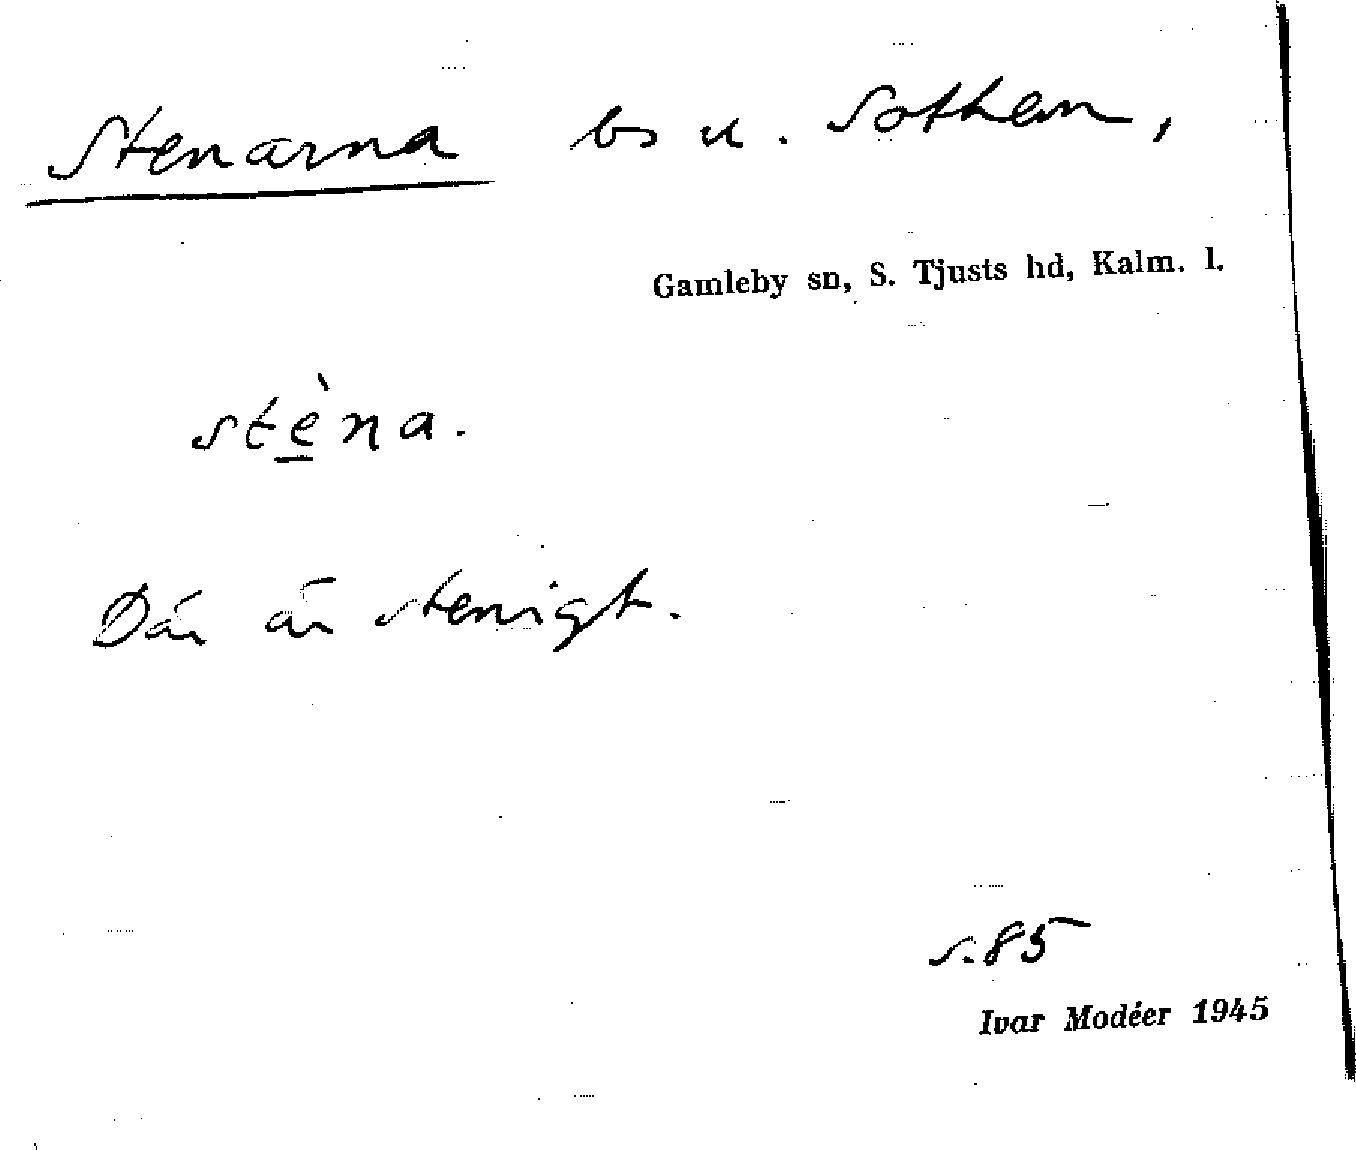 Stenarna bs u. Sothem,
Gamleby sn, S. Tjusts hd, Kalm. l.
stè̠na.
Där är stenigt.
s. 85
Ivar Modéer 1945